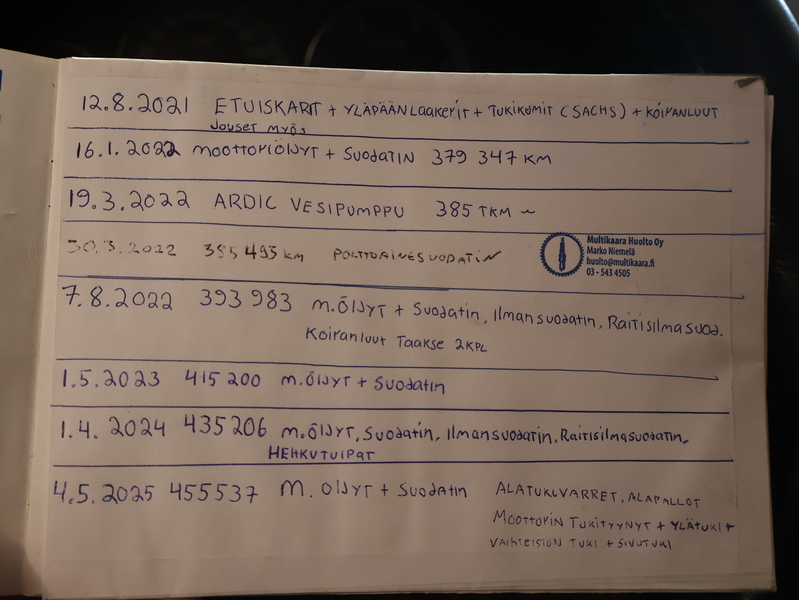 12.8.2021 ETUISKARIT + YLÄPÄÄN Laakerit + TUKIKUMIT (SACHS) + KOIRANLUUT
Jouset myös
16.1.2022 moottoriöljyt + Suodatin 379 347 KM
19.3.2022 ARDIC VESIPUMPPU 385 TKM ~
30.3.2022 385 493 KM POLTTOAINESUODATIN
Multikaara Huolto Oy
Marko Niemelä
huolto@multikaara.fi
03 - 543 4505
7.8.2022 393 983 m.Öljyt + Suodatin, Ilmansuodatin, Raitisilmasuod.
Koiranluut Taakse 2KPL
1.5.2023 415 200 m.Öljyt + Suodatin
1.4. 2024 435 206 m.Öljyt, Suodatin, Ilmansuodatin, Raitisilmasuodatin,
HEHKUTULPAT
4.5.2025 455537 M. Öljyt + Suodatin ALATUKIVARRET, ALAPALLOT
Moottorin TUKITYYNYT + YLÄTUKI +
VAIHTEISTON TUKI + SIVUTUKI